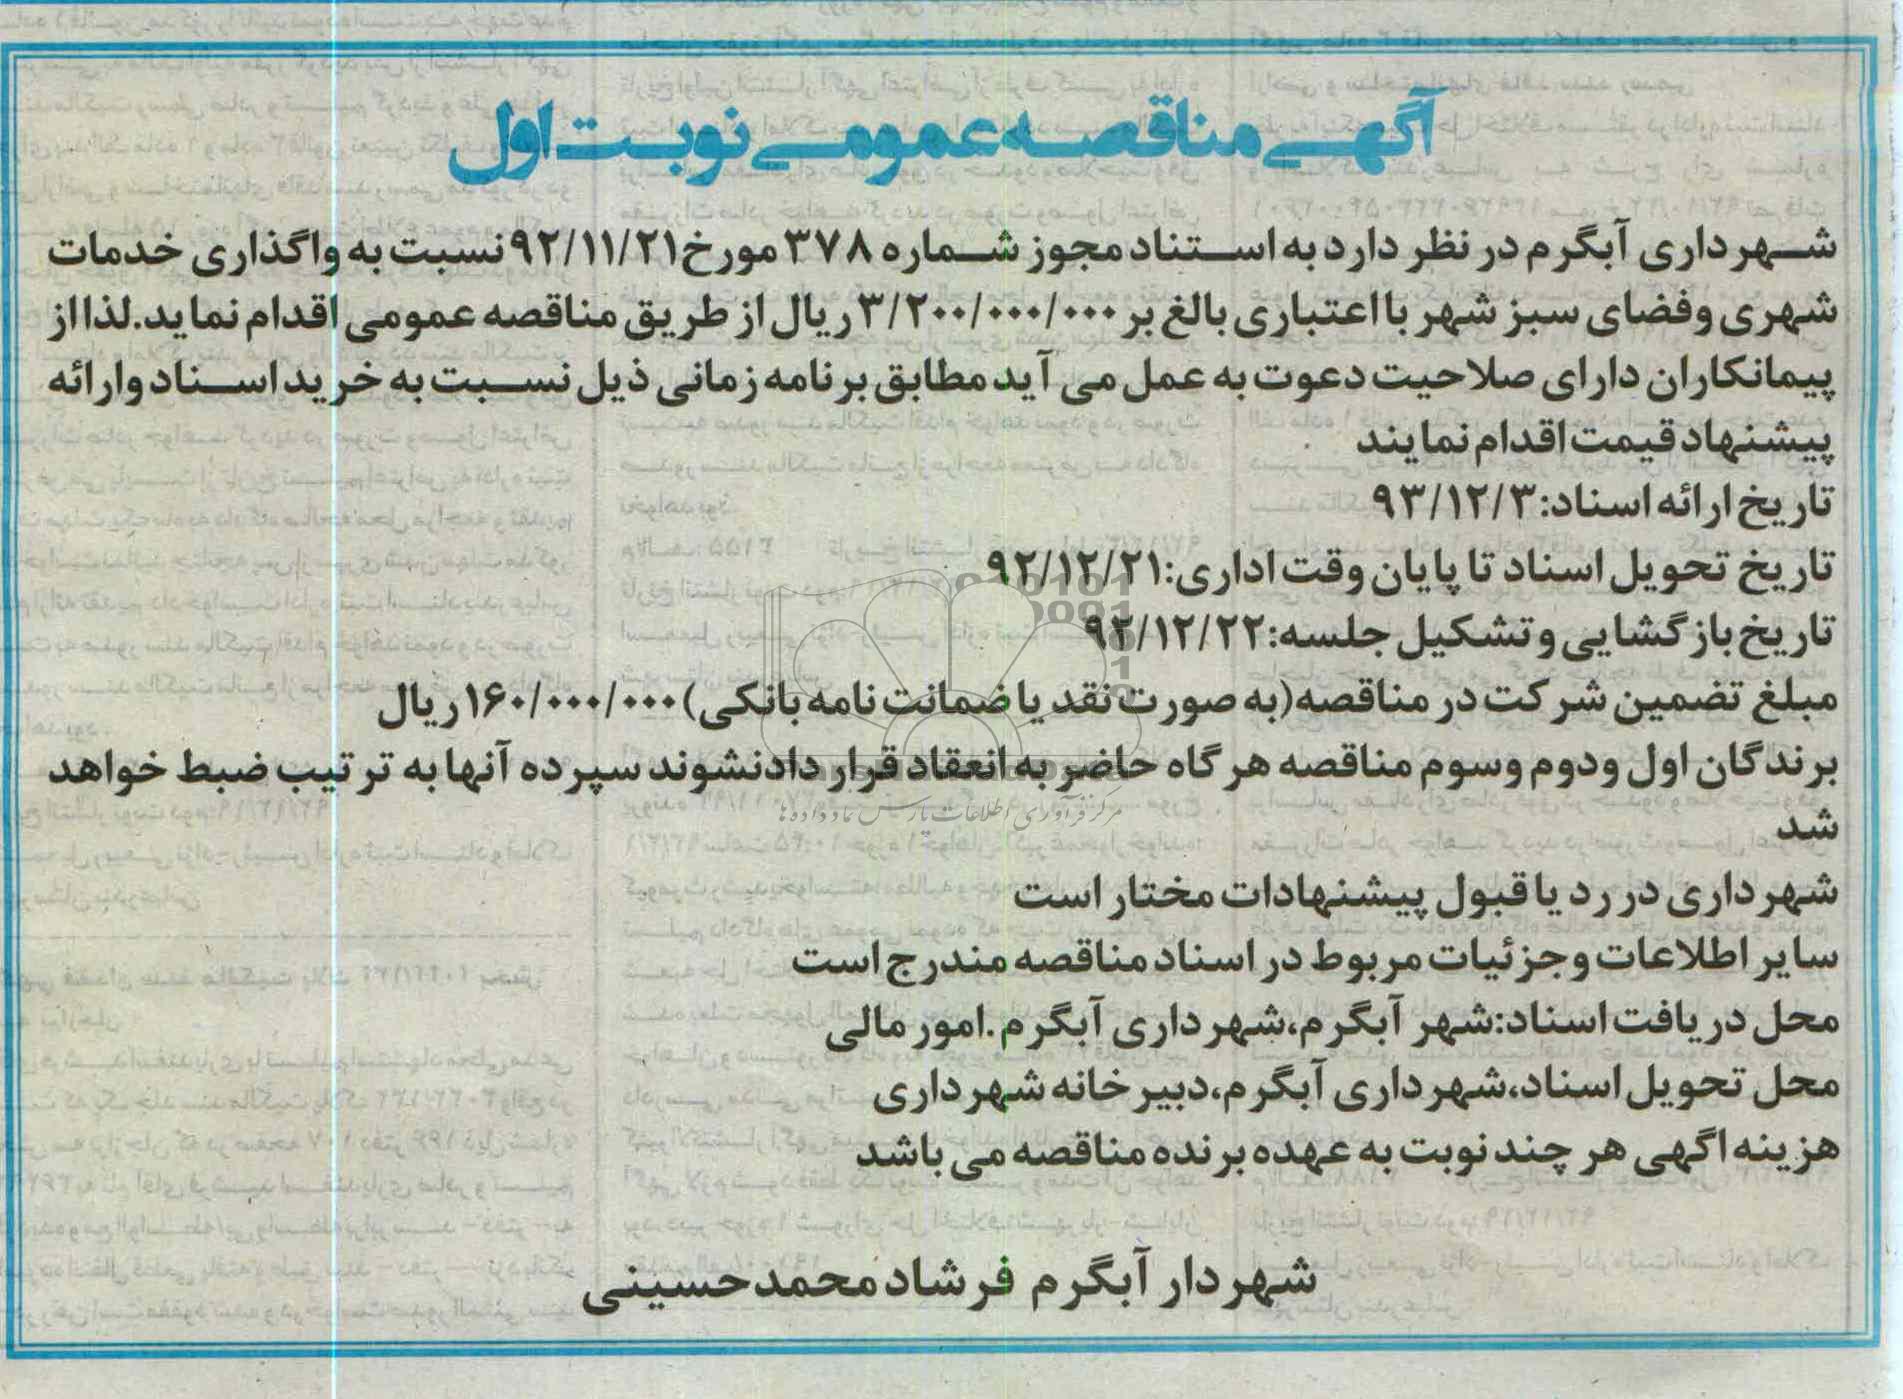 آگهی مناقصه عمومی نوبت اول
شهرداری آبگرم در نظر دارد به استناد مجوز شماره ۳۷۸ مورخ ۹۲/۱۱/۲۱ نسبت به واگذاری خدمات
شهری وفضای سبز شهر با اعتباری بالغ بر ۳/۲۰۰/۰۰۰/۰۰۰ ریال از طریق مناقصه عمومی اقدام نماید.لذا از
پیمانکاران دارای صلاحیت دعوت به عمل می آید مطابق برنامه زمانی ذیل نسبت به خرید اسناد وارائه
پیشنهاد قیمت اقدام نمایند
تاریخ ارائه اسناد:۹۳/۱۲/۳
تاریخ تحویل اسناد تا پایان وقت اداری:۹۲/۱۲/۲۱
تاریخ بازگشایی و تشکیل جلسه:۹۲/۱۲/۲۲
مبلغ تضمین شرکت در مناقصه(به صورت نقد یا ضمانت نامه بانکی)۱۶۰/۰۰۰/۰۰۰ ریال
برندگان اول ودوم وسوم مناقصه هرگاه حاضر به انعقاد قرار دادنشوند سپرده آنها به ترتیب ضبط خواهد
شد
شهرداری در رد یا قبول پیشنهادات مختار است
سایر اطلاعات وجزئیات مربوط در اسناد مناقصه مندرج است
محل دریافت اسناد:شهر آبگرم،شهرداری آبگرم.امور مالی
محل تحویل اسناد،شهرداری آبگرم،دبیرخانه شهرداری
هزینه اگهی هر چند نوبت به عهده برنده مناقصه می باشد
شهردار آبگرم فرشاد محمدحسینی
مرکز فرآوری اطلاعات پارس نماد داده ها